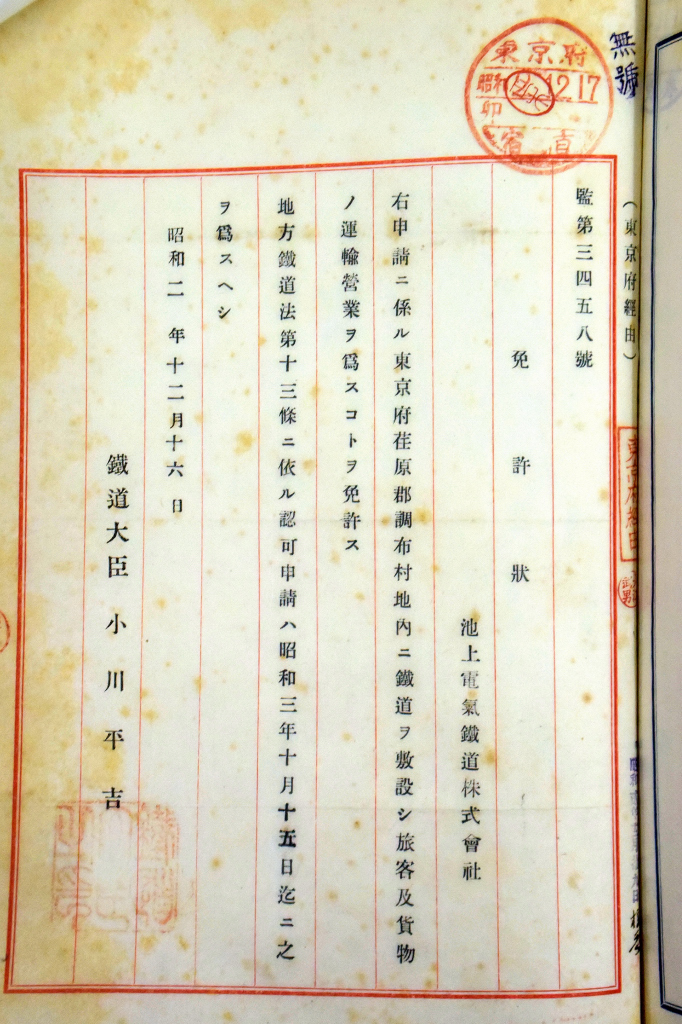 無號
東京府
昭和 12 17
(東京府經由)
東京府經由
監第三四五八號
免許狀
池上電氣鐵道株式會社
右申請ニ係ル東京府荏原郡調布村地內ニ鐵道ヲ敷設シ旅客及貨物
ノ運輸營業ヲ爲スコトヲ免許ス
地方鐵道法第十三條ニ依ル認可申請ハ昭和三年十月十五日迄ニ之
ヲ爲スヘシ
昭和二年十二月十六日
鐵道大臣 小川平吉